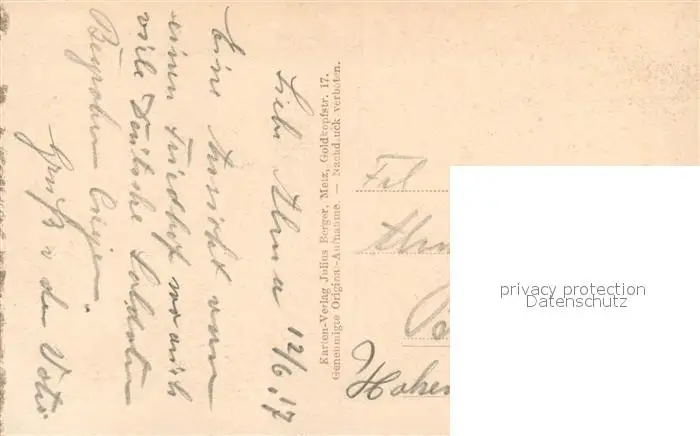 Liebe Alma 12/6.17
Eine Ansicht vom
einen Friedhof wo auch
viele Deutsche Soldaten
Begraben liegen.
Gruß v. dein Vater
Karten-Verlag Julius Berger, Metz, Goldkopfstr. 17.
Genehmigte Original-Aufnahme. — Nachdruck verboten.
Frl
Alm
Hohen
privacy protection
Datenschutz